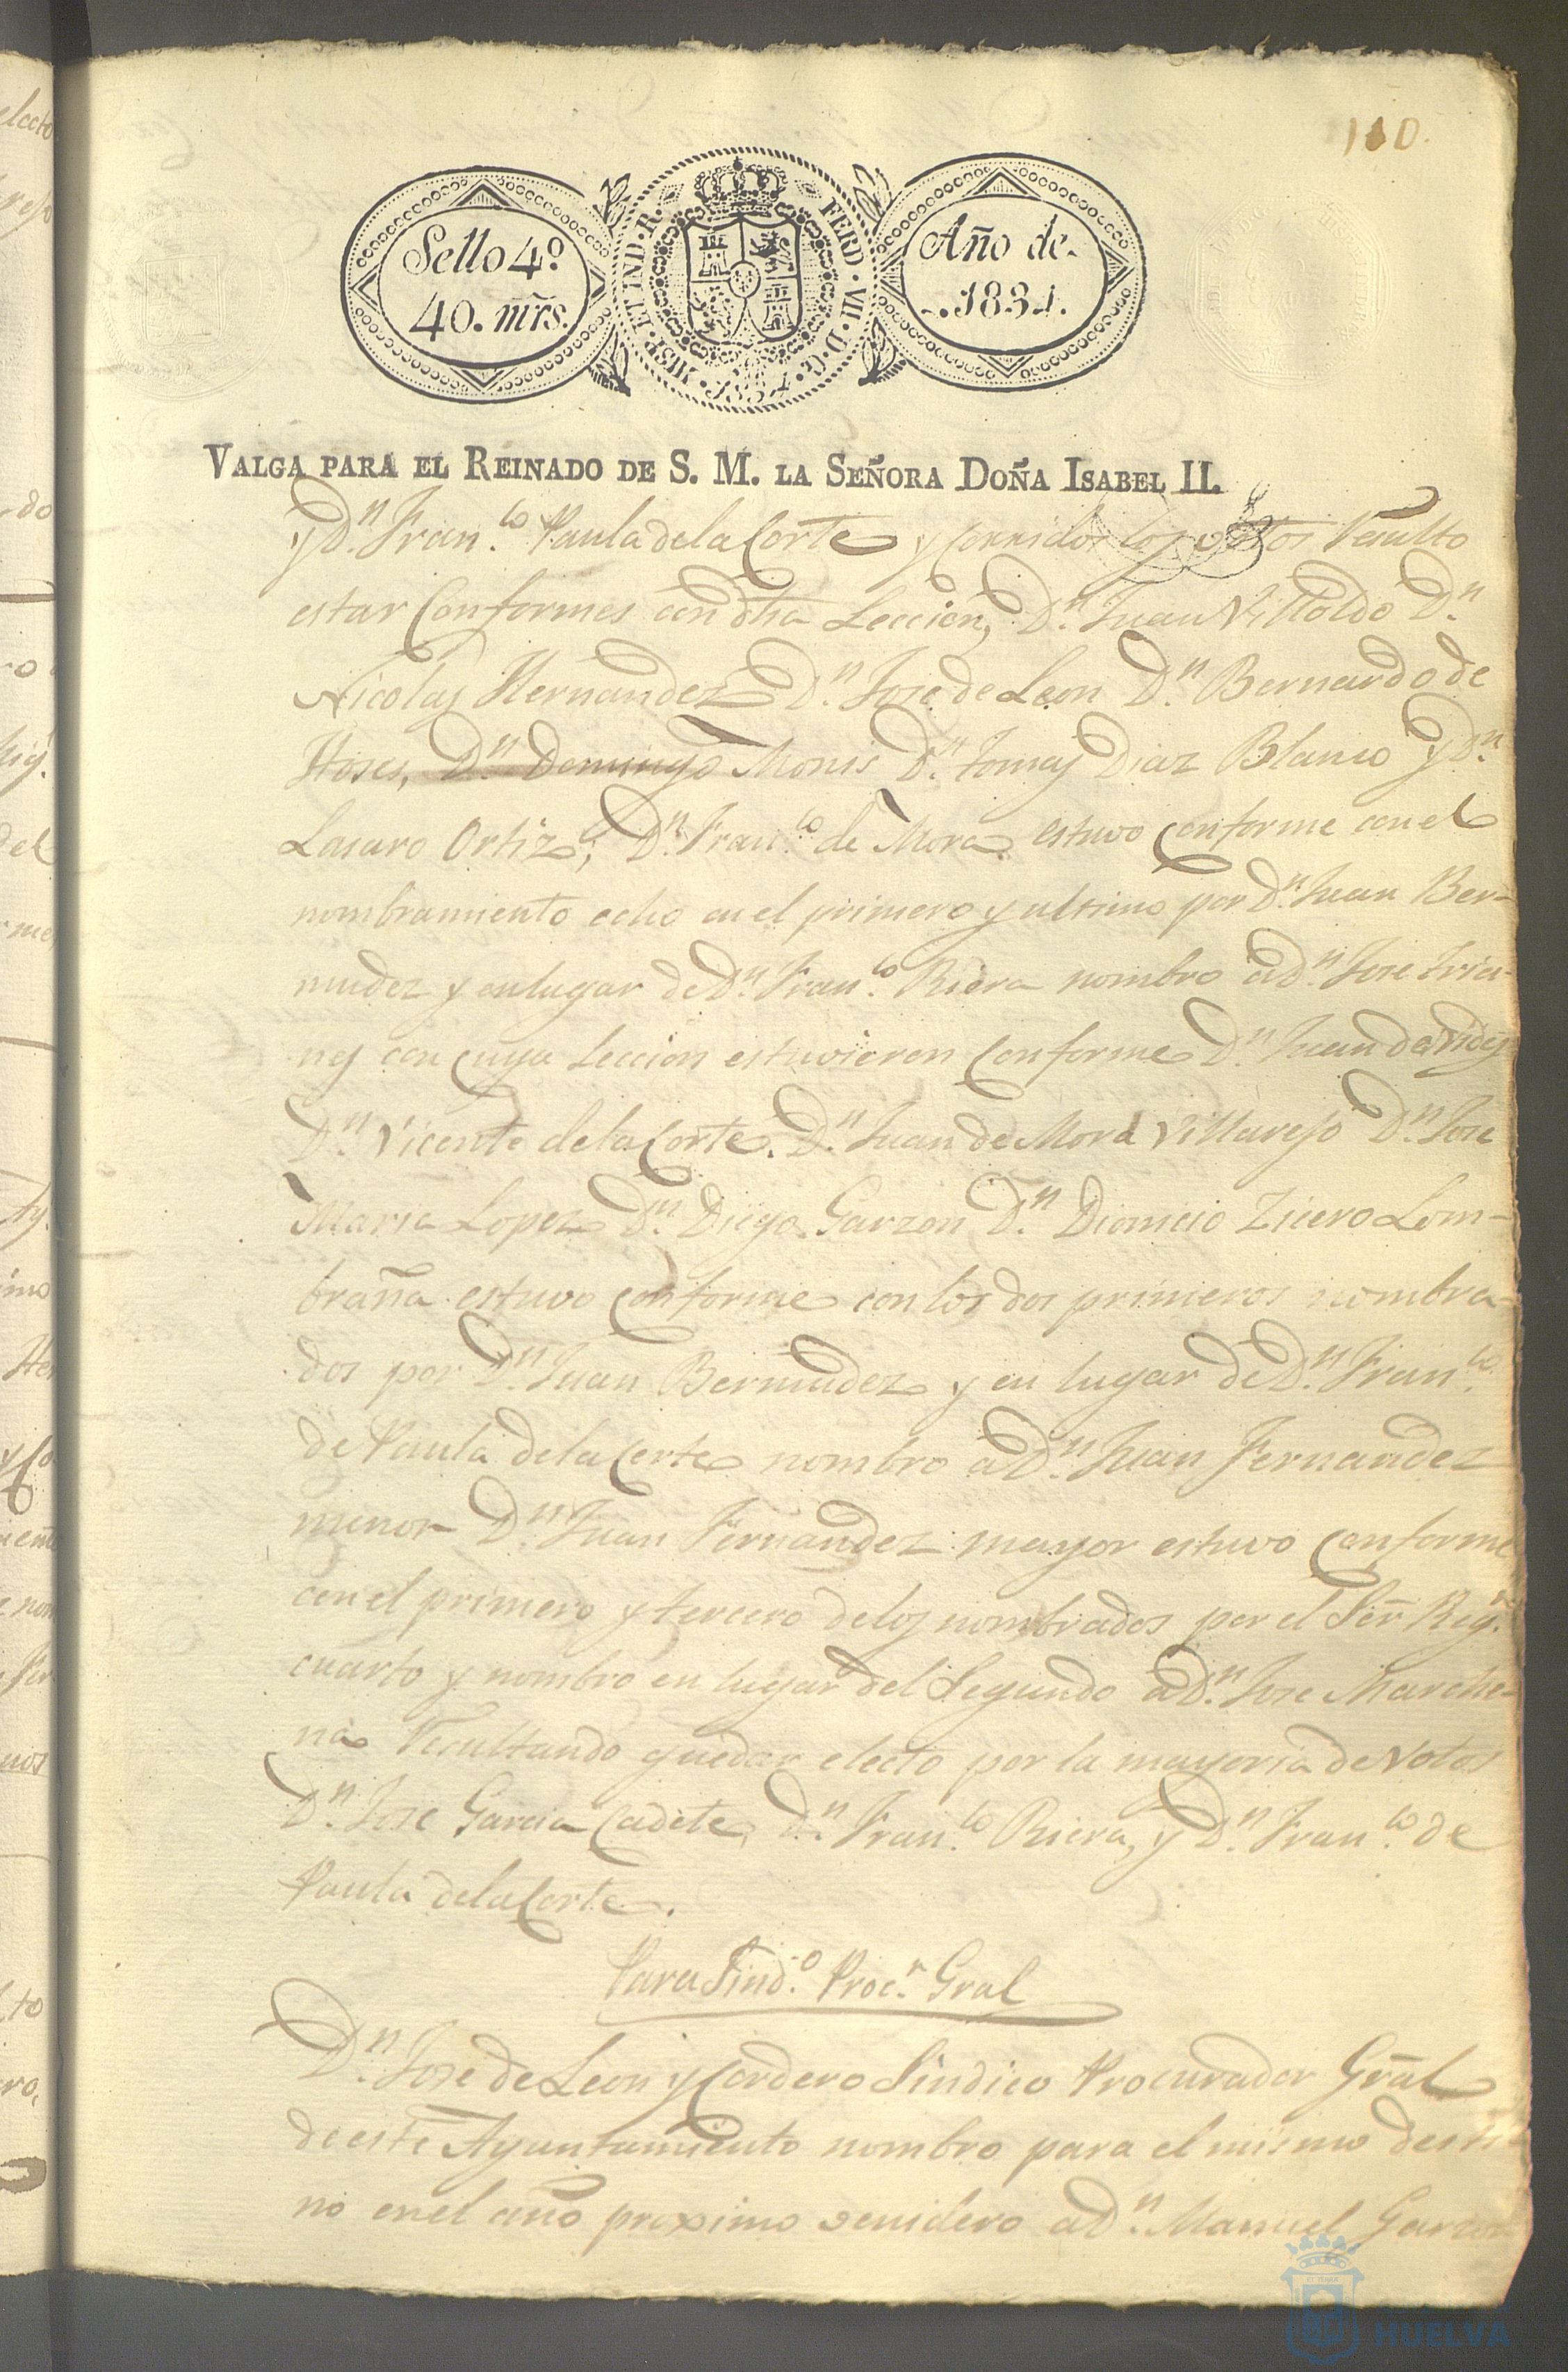 110.
Sello 4.º
40. mrs.
HISP. ET IND. R. FERD. VII. D. G. 1834.
Año de
1834.
VALGA PARA EL REINADO DE S. M. LA SEÑORA DOÑA ISABEL II.
y Dn. Franco. Paula de la Corte y corridos los votos Resulto
estar Conformes con dha Leccion, Dn. Juan Villoldo Dn.
Nicolas Hernandez Dn. Jose de Leon Dn. Bernardo de
Hoses, Dn. Domingo Monis Dn. Tomas Diaz Blanco y Dn.
Lasaro Ortiz; Dn. Franco. de Mora estuvo conforme con el
nombramiento echo en el primero y ultimo por Dn. Juan Ber-
mudez y en lugar de Dn. Franco. Riera nombro a Dn. Jose
nes con cuya Leccion estuvieron conforme Dn. Juan de
Dn. Vicente de la Corte. Dn. Juan de Mora Villarejo Dn. Jose
Maria Lopez Dn. Diego Garzon Dn. Dionicio Zicero Lom-
braña estuvo conforme con los dos primeros nombra-
dos por Dn. Juan Bermudez y en lugar de Dn. Franco.
de Paula de la Corte nombro a Dn. Juan Fernandez
menor Dn. Juan Fernandez mayor estuvo conforme
con el primero y tercero de los nombrados por el Señr. Regr.
cuarto y nombro en lugar del Segundo a Dn. Jose Marche-
na Resultando quedar electo por la mayoria de votos
Dn. Jose Garcia Cadete, Dn. Franco. Riera, y Dn. Franco. de
Paula de la Corte.
Para Sindo. Procr. Gral
Dn. Jose de Leon y Cordero Sindico Procurador Gral
de este Ayuntamiento nombro para el mismo desti-
no en el año proximo venidero a Dn. Manuel Garzon
HUELVA